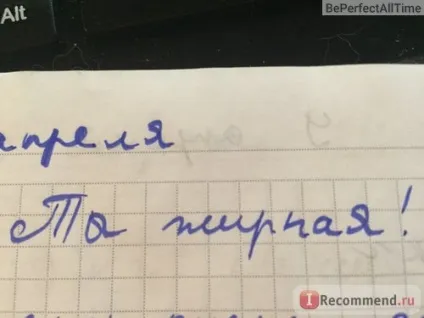 Alt
BePerfectAllTime
апреля
Ты жирная!
I Recommend.ru